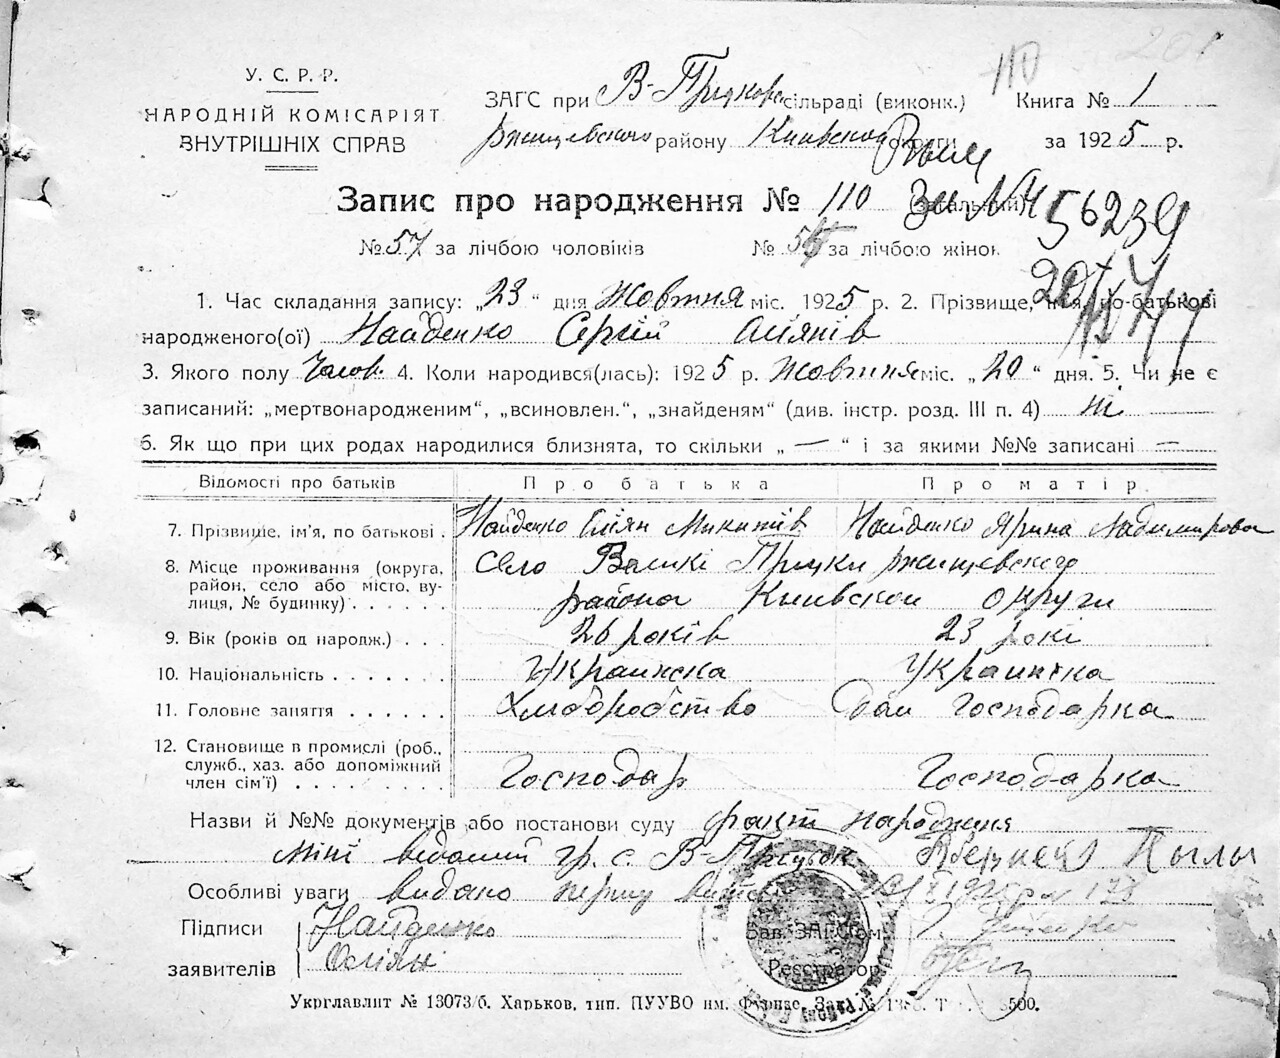 110
201
У. С. Р. Р.
НАРОДНІЙ КОМІСАРІЯТ
ВНУТРІШНІХ СПРАВ
ЗАГС при В-Прицкове сільраді (виконк.) Книга № 1
Ржищевского району Киивской округи за 1925 р.
Запис про народження № 110 (загальний)
56239
№ 57 за лічбою чоловіків № за лічбою жінок
1. Час складання запису: „23“ дня Жовтня міс. 1925 р. 2. Прізвище, ім'я, по-батькові
народженого(ої) Найденко Сергій
3. Якого полу Чолов. 4. Коли народився(лась): 1925 р. Жовтня міс. „20“ дня. 5. Чи не є
записаний: „мертвонародженим“, „всиновлен.“, „знайденям“ (див. інстр. розд. III п. 4) ні
6. Як що при цих родах народилися близнята, то скільки „ — “ і за якими №№ записані —
Відомості про батьків Про батька Про матір.
7. Прізвище, ім'я, по батькові . Найденко Микитів Найденко Ярина
8. Місце проживання (округа, Село Великі Прицки Ржищевского
район, село або місто, ву-
лиця, № будинку) . . . . . . района Киивской округи
9. Вік (років од народж.) . . . 26 років 23 рокі
10. Національність . . . . . . . Украинска Украинка
11. Головне заняття . . . . . . Хлібробство Дом Господарка
12. Становище в промислі (роб.,
служб., хаз. або допоміжний
член сім'ї) . . . . . . . . . Господар Господарка
Назви й №№ документів або постанови суду факт народження
мині відомий гр. с. В-Прицьок
Особливі уваги видано перщу
Підписи Найденко Зав. ЗАГС'ом
заявителів Реєстратор
Укрглавлит № 13073/б. Харьков, тип. ПУУВО им. Фрунзе. Зак. №